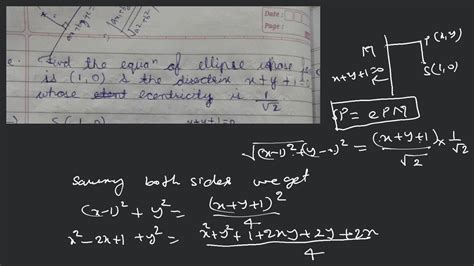 Date:
Find the equan of ellipse whose
is (1,0) & the directrix x+y+1=0
whose ecentricity is 1/√2
S(1,0) x+y+1=0
M P(x,y)
x+y+1=0 S(1,0)
SP = ePM
√(x-1)²+(y-)² = (x+y+1)/√2 × 1/√2
both sides we get
(x-1)² + y² = (x+y+1)²/4
x²-2x+1 + y² = x²+y²+1+2xy+2y+2x/4